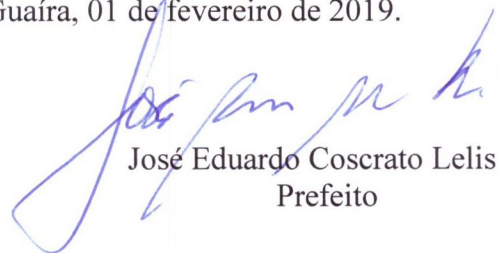 Guaíra, 01 de fevereiro de 2019.
José Eduardo Coscrato Lelis
Prefeito